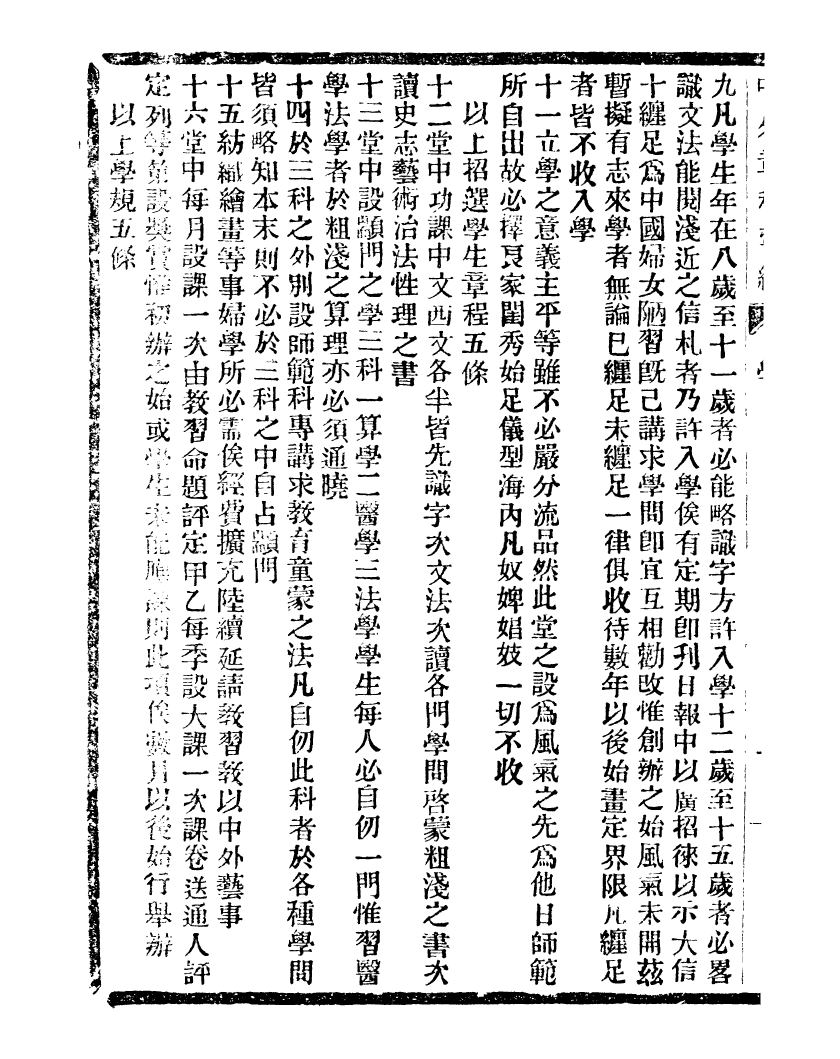 九凡學生年在八歲至十一歲者必能略識字方許入學十二歲至十五歲者必畧
識文法能閱淺近之信札者乃許入學俟有定期卽刊日報中以廣招徠以示大信
十纏足爲中國婦女陋習旣己講求學問卽宜互相勸改惟創辦之始風氣未開茲
暫擬有志來學者無論已纏足未纏足一律俱收待數年以後始畫定界限凡纏足
者皆不收入學
十一立學之意義主平等雖不必嚴分流品然此堂之設爲風氣之先爲他日師範
所自出故必擇良家閨秀始足儀型海內凡奴婢娼妓一切不收
以上招選學生章程五條
十二堂中功課中文西文各半皆先識字次文法次讀各門學問啓蒙粗淺之書次
讀史志藝術治法性理之書
十三堂中設顓門之學三科一算學二醫學三法學學生每人必自仞一門惟習醫
學法學者於粗淺之算理亦必須通曉
十四於三科之外別設師範科專講求教育童蒙之法凡自仞此科者於各種學問
皆須略知本末則不必於三科之中自占顓門
十五紡織繪畫等事婦學所必需俟經費擴充陸續延請教習教以中外藝事
十六堂中每月設課一次由教習命題評定甲乙每季設大課一次課卷送通人評
定列等第設獎賞惟初辦之始或學生未能應課則此項俟數月以後始行舉辦
以上學規五條